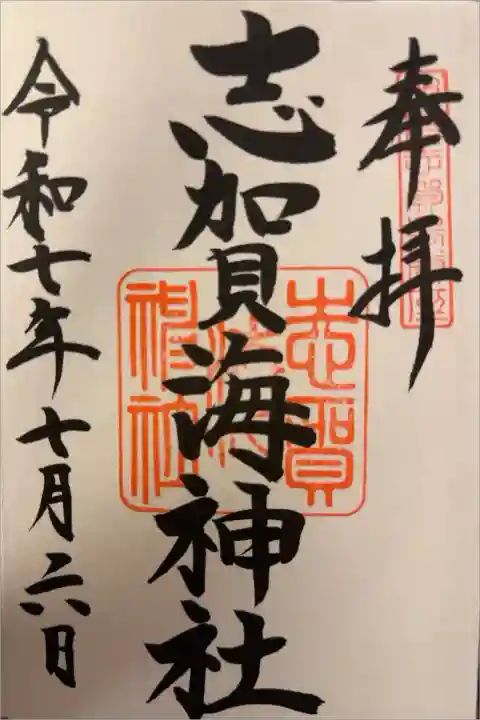 奉拝
志賀海神社
令和七年十月二六日
志賀
神社